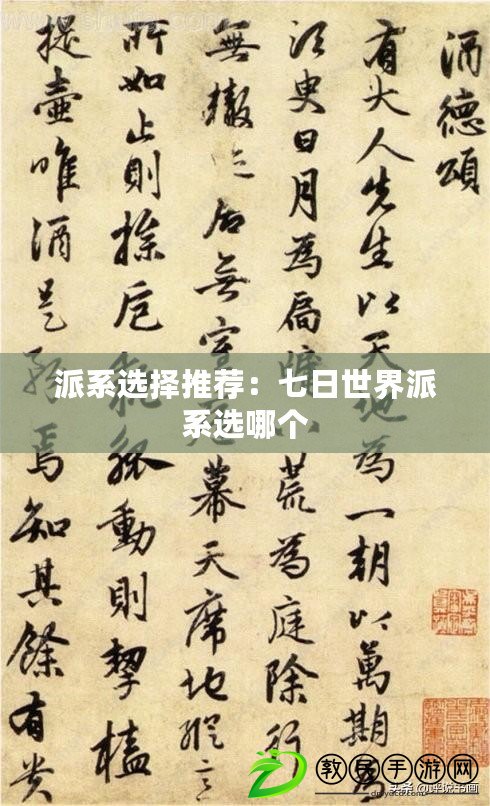 酒德頌
有大人先生以天地為一朝以萬期為
須臾日月為扃牖八荒為庭除行
無轍居無室幕天席地縱意
所如止則操卮執觚動則挈榼
提壺唯酒是務焉知其餘有貴
派系选择推荐：七日世界派
系选哪个
手游网